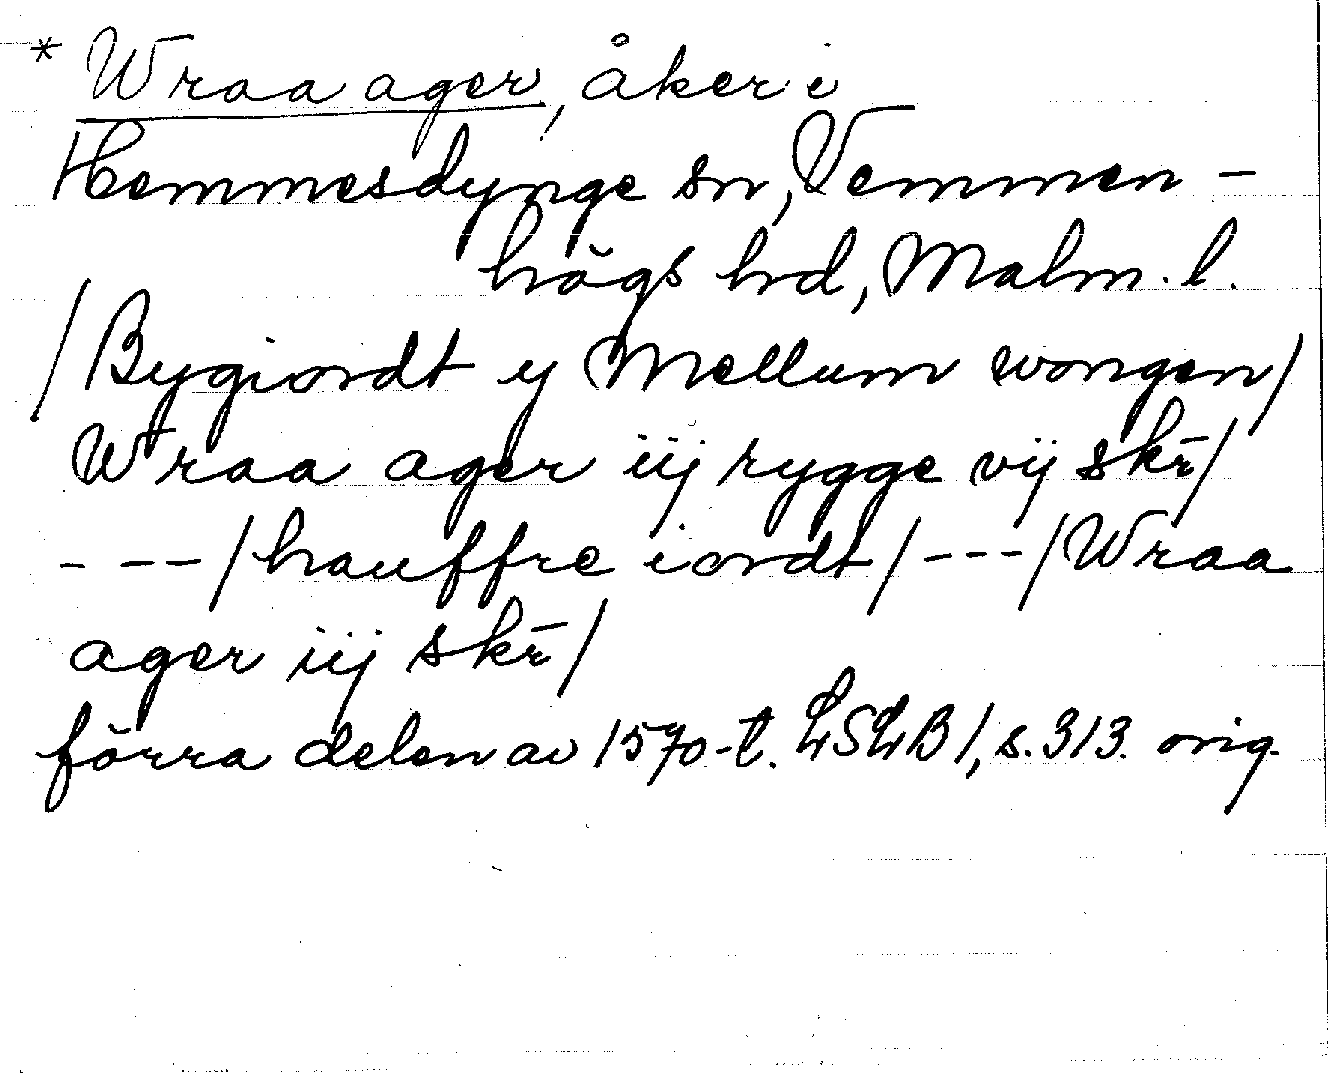 * Wraa ager, åker i
Hemmesdynge sn, Vemmen-
högs hd, Malm. l.
/Bygiordt y Mellum wongen/
Wraa ager iij rygge vij skr̄/
- - - /hauffre iordt/ - - - /Wraa
ager iij skr̄/
förra delen av 1570-t. LSLB 1, s. 313. orig.